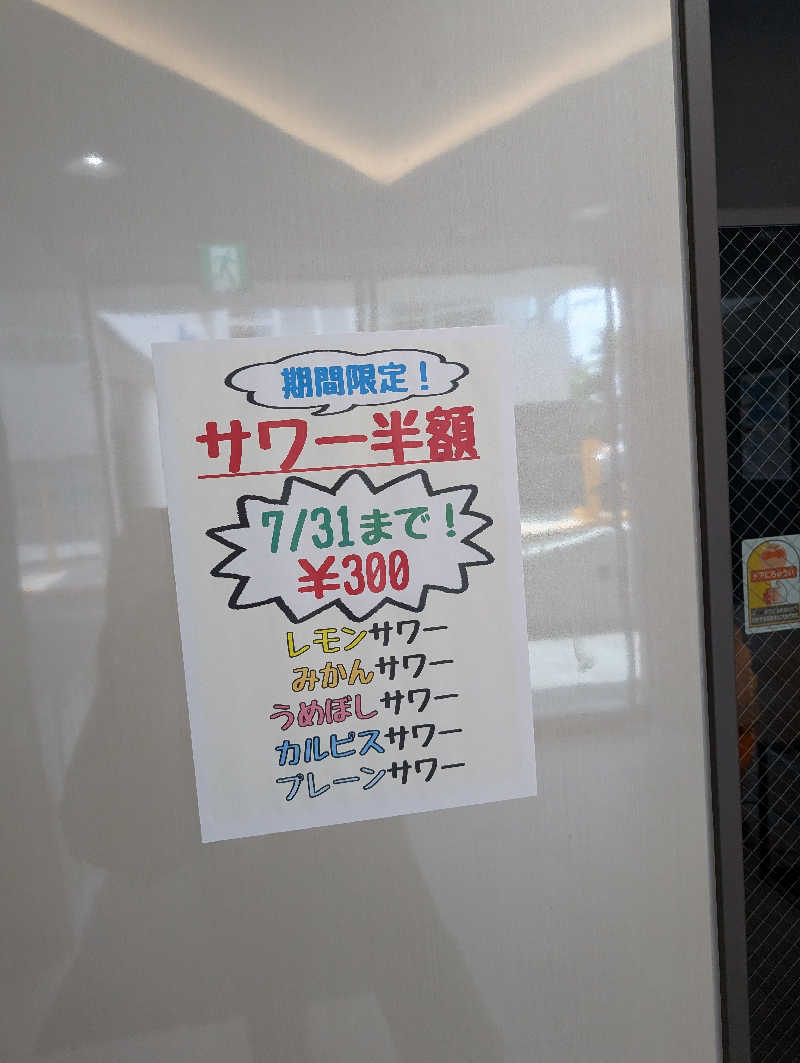 期間限定！
サワー半額
7/31まで！
¥300
レモンサワー
みかんサワー
うめぼしサワー
カルピスサワー
プレーンサワー
ドアにちゅうい